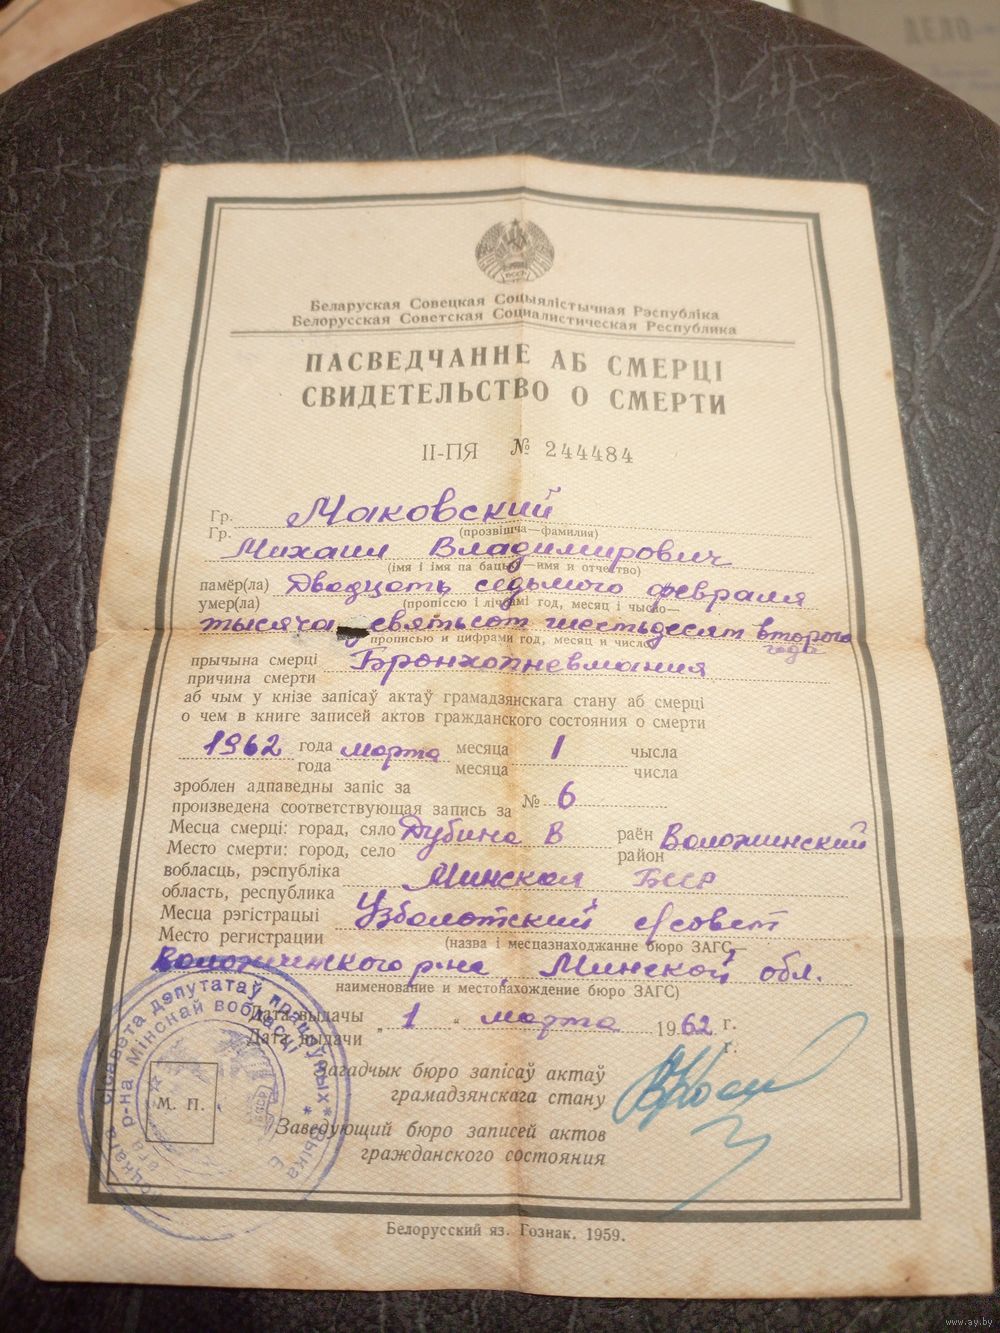 ДЕЛО
БССР
Беларуская Совецкая Соцыялістычная Рэспубліка
Белорусская Советская Социалистическая Республика
ПАСВЕДЧАННЕ АБ СМЕРЦІ
СВИДЕТЕЛЬСТВО О СМЕРТИ
II-ПЯ № 244484
Гр. Маковский
Гр. (прозвішча—фамилия)
Михаил Владимирович
(імя і імя па бацьку—имя и отчество)
памёр(ла) Двадцать седьмого февраля
умер(ла) (пропіссю і лічбамі год, месяц і чысло—
тысяча девятьсот шестьдесят второго
года
прописью и цифрами год, месяц и число)
прычына смерці Бронхопневмания
причина смерти
аб чым у кнізе запісаў актаў грамадзянскага стану аб смерці
о чем в книге записей актов гражданского состояния о смерти
1962 года марта месяца 1 чысла
года месяца числа
зроблен адпаведны запіс за
произведена соответствующая запись за № 6
Месца смерці: горад, сяло Дубина В раён Воложинский
Место смерти: город, село район
вобласць, рэспубліка Минская БССР
область, республика
Месца рэгістрацыі Узболотский с/совет
Место регистрации (назва і месцазнаходжанне бюро ЗАГС—
Воложинского р-на, Минской обл.
наименование и местонахождение бюро ЗАГС)
Дата выдачы „ 1 “ марта 1962 г.
Дата выдачи г.
Загадчык бюро запісаў актаў
грамадзянскага стану
М. П.
Заведующий бюро записей актов
гражданского состояния
сісавета дэпутатаў працоўных * Выка
га р-на Мінскай вобласці
Белорусский яз. Гознак. 1959.
www.ay.by